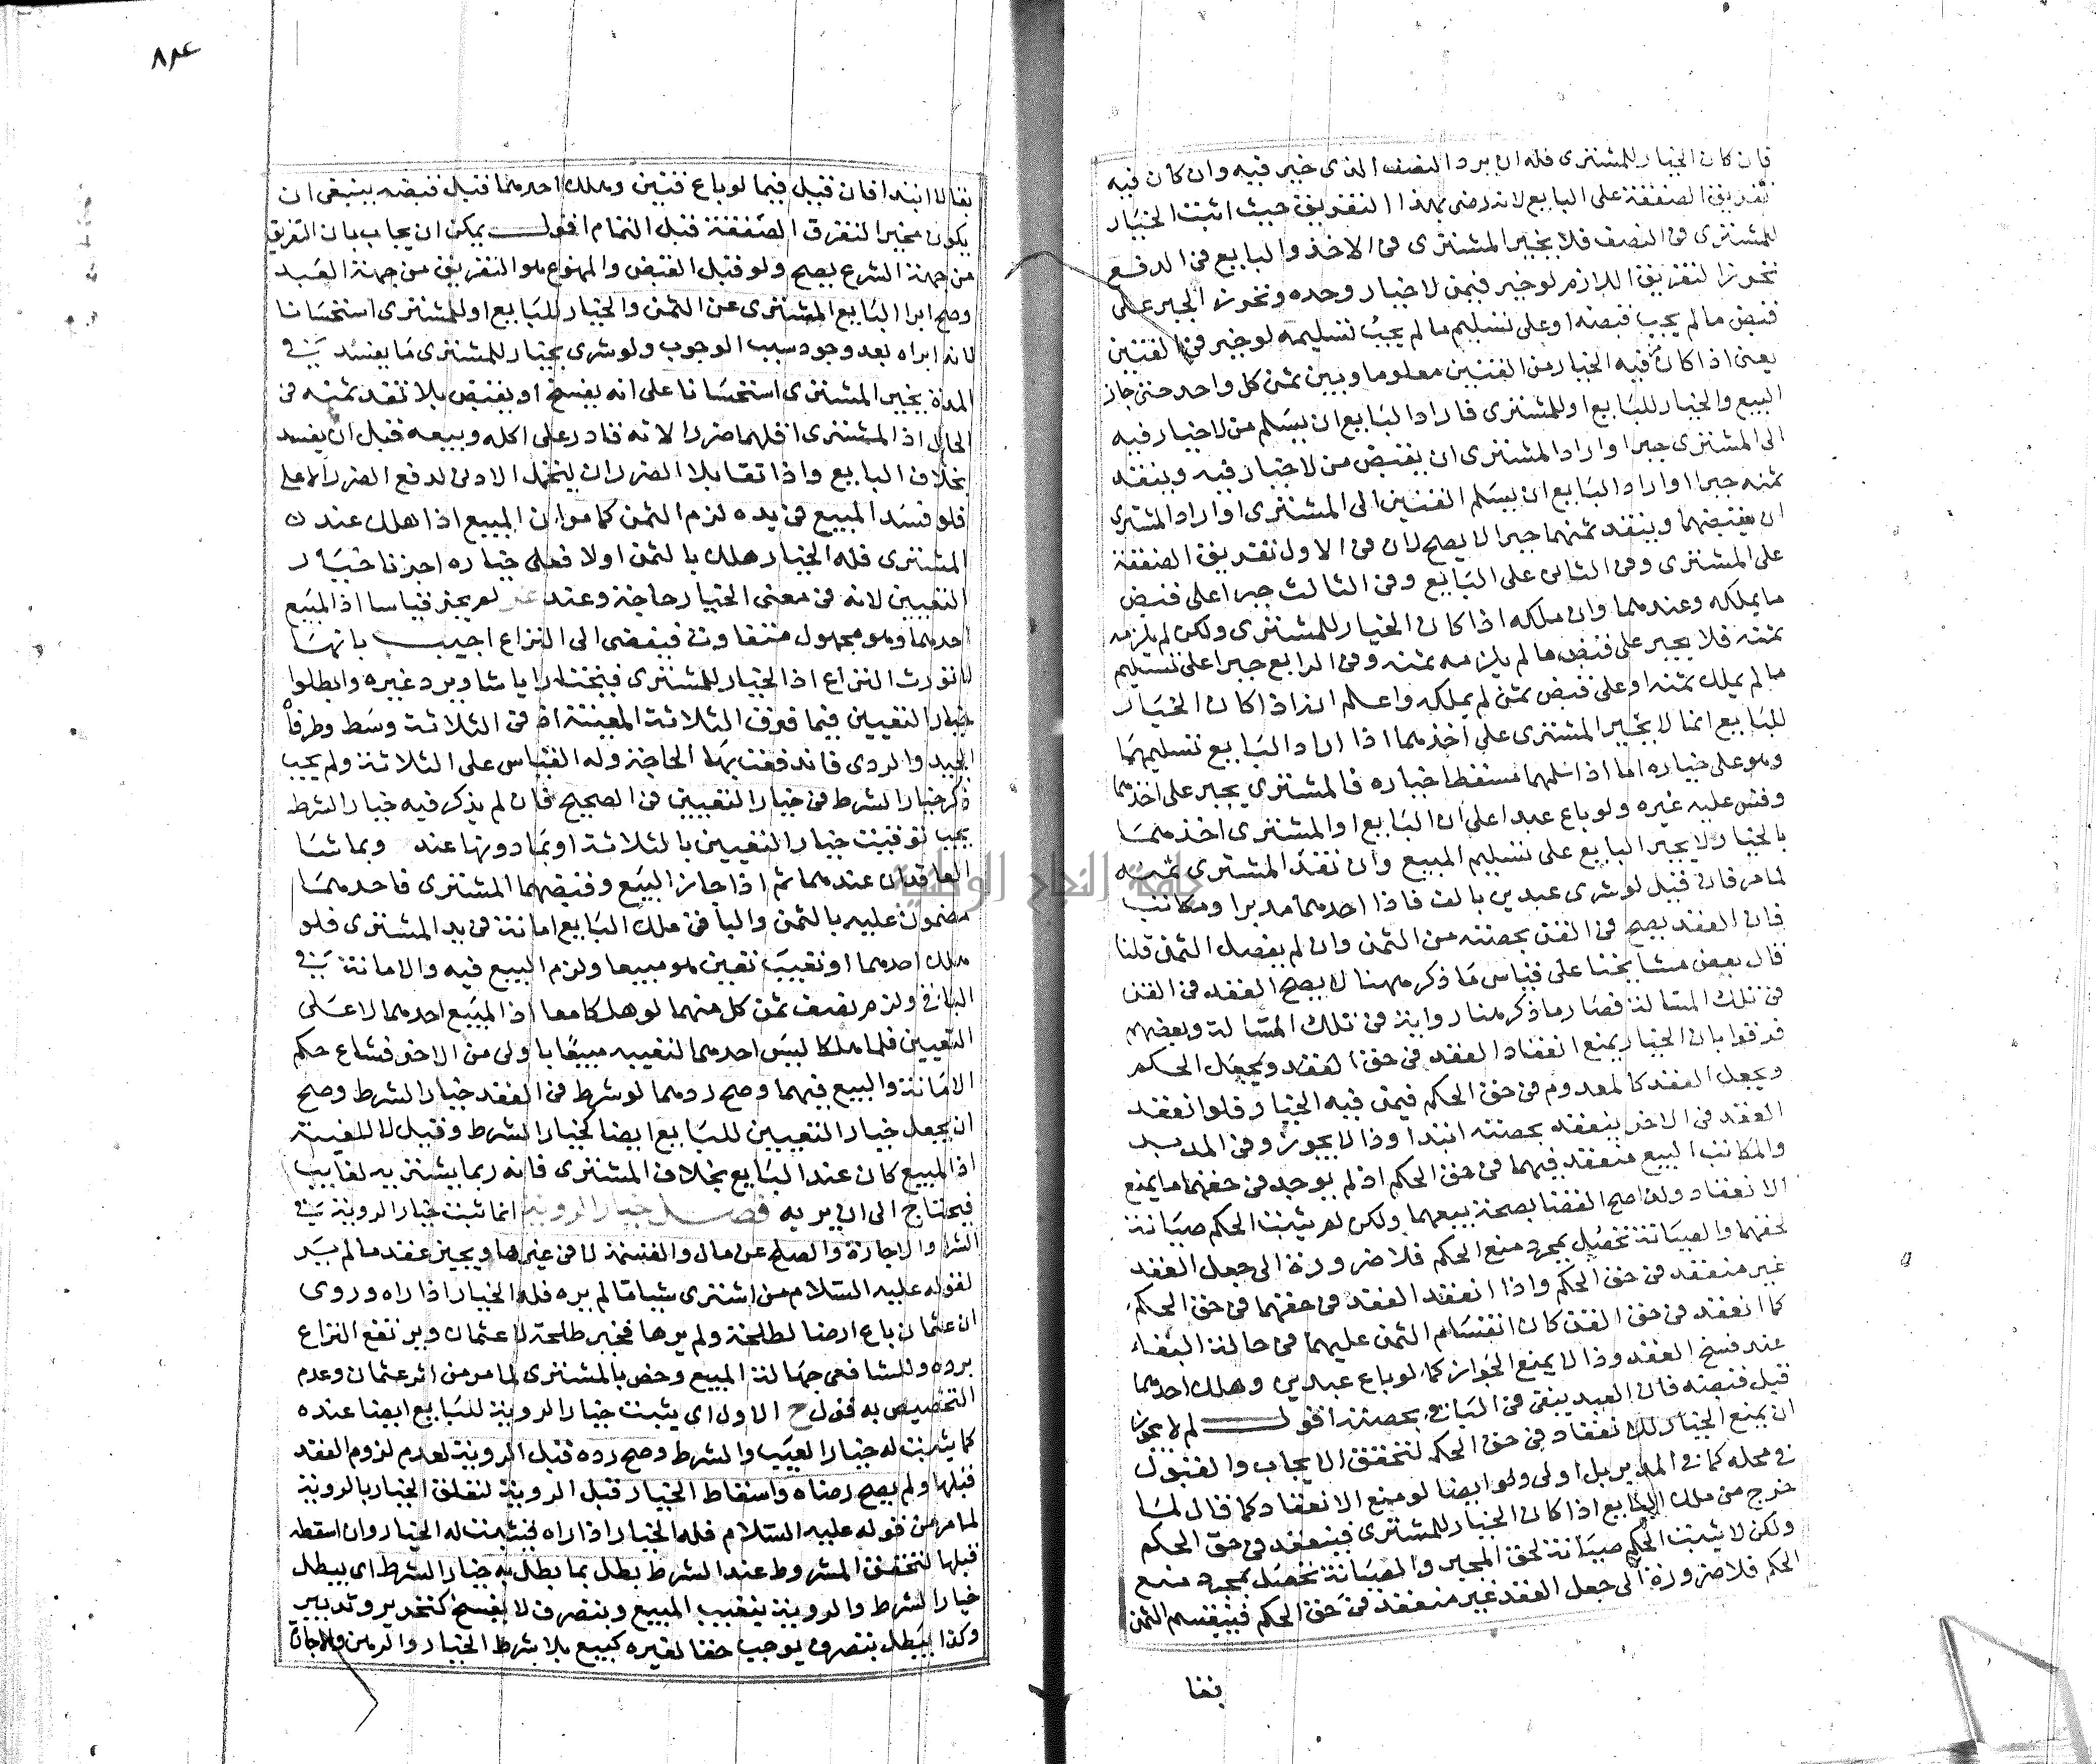 فان كان الخيار للمشترى فله ان يرد النصف الذى خير فيه وان كان فيه
تفريق الصفقة على البايع لانه رضى بهذا التفريق حيث اثبت الخيار
للمشترى فى النصف فلا يخير المشترى فى الاخذ والبايع فى الدفع
تحرزا لتفريق اللازم لو خير فيمن لا خيار وحده وتحرزا الجبر على
قبض ما لم يجب قبضه او على تسليم ما لم يجب تسليمه لو خير فى القنين
يعنى اذا كان فيه الخيار من القنين معلوما وبين ثمن كل واحد حتى جاز
البيع والخيار للبايع او للمشترى فاراد البايع ان يسلم من لا خيار فيه
الى المشترى جبرا او اراد المشترى ان يقبض من لا خيار فيه وينقد
ثمنه جبرا او اراد البايع ان يسلم القنين الى المشترى او اراد المشترى
ان يقبضهما وينقد ثمنهما جبرا لا يصح لان فى الاول تفريق الصفقة
على المشترى وفى الثانى على البايع وفى الثالث جبرا على قبض
ما يملكه وعندهما وان ملكه اذا كان الخيار للمشترى ولكن لم يلزمه
ثمنه فلا يجبر على قبض ما لم يلزمه ثمنه وفى الرابع جبرا على تسليم
ما لم يملك ثمنه او على قبض ثمن لم يملكه واعلم انه اذا كان الخيار
للبايع انما لا يخير المشترى على اخذهما اذا اراد البايع تسليمهما
وهو على خياره اما اذا سلمهما مسقطا خياره فالمشترى يجبر على اخذهما
وقس عليه غيره ولو باع عبدا على ان البايع او المشترى اخذهما
بالخيار لا يجبر البايع على تسليم المبيع وان نقد المشترى ثمنه
لما مر فان قيل لو شرى عبدين بالف فاذا احدهما مدبر او مكاتب
فان العقد يصح فى القن بحصته من الثمن وان لم يفصل الثمن قلنا
قال بعض مشايخنا على قياس ما ذكر ههنا لا يصح العقد فى القن
فى تلك المسالة فصار ما ذكر هنا رواية فى تلك المسالة وبعضهم
فرقوا بان الخيار يمنع انعقاد العقد فى حق العقد ويجعل الحكم
ويجعل العقد كالمعدوم فى حق الحكم فيمن فيه الخيار فلو انعقد
العقد فى الاخر ينعقد بحصته ابتدا وذا لا يجوز وفى المدبر
والمكاتب البيع منعقد فيهما فى حق الحكم اذ لم يوجد فى حقهما ما يمنع
الانعقاد ولهذا صح القضا بصحة بيعهما ولكن لم يثبت الحكم صيانة
لحقهما والصيانة تحصل بمجرد منع الحكم فلا ضرورة الى جعل العقد
غير منعقد فى حق الحكم واذا انعقد العقد فى حقهما فى حق الحكم
كما انعقد فى حق القن كان انقسام الثمن عليهما فى حالة البقاء
عند فسخ العقد وذا لا يمنع الجواز كما لو باع عبدين وهلك احدهما
قبل قبضه فان العبد يبقى فى الباقى بحصته اقول لم لا يجوز
ان يمنع الخيار لانعقاد فى حق الحكم لتحقق الايجاب والقبول
فى محله كما فى المدبر بل اولى ولو ايضا لو منع الانعقاد كما قال لما
خرج من ملك البايع اذا كان الخيار للمشترى فينعقد فى حق الحكم
ولكن لا يثبت الحكم صيانة لحق المخير والصيانة تحصل بمجرد منع
الحكم فلا ضرورة الى جعل العقد غير منعقد فى حق الحكم فينقسم الثمن
بقا
٨٣٤
بقا لا ابتدا فان قيل فيما لو باع قنين وهلك احدهما قبل قبضه ينبغى ان
يكون مخيرا لتفرق الصفقة قبل التمام اقول يمكن ان يجاب بان التفريق
من جهة الشرع يصح ولو قبل القبض والممنوع هو التفريق من جهة العبد
وصح ابرا البايع المشترى عن الثمن والخيار للبايع او للمشترى استحسانا
لانه ابراه بعد وجود سبب الوجوب ولو شرى بخيار للمشترى ما يفسد فى
المدة يخير المشترى استحسانا على انه يفسخ او يقبض بلا نقد ثمنه فى
الحال اذ المشترى اقلهما ضررا لانه قادر على اكله وبيعه قبل ان يفسد
بخلاف البايع واذا تقابلا الضرران يتحمل الادنى لدفع الضرر الاعلى
فلو فسد المبيع فى يده لزم الثمن كما مر ان المبيع اذا هلك عند
المشترى فله الخيار هلك بالثمن اولا فعلى خياره اجزنا خيار
التعيين لانه فى معنى الخيار حاجة وعند لم يجز قياسا اذ المبيع
احدهما وهو مجهول متفاوت فيفضى الى النزاع اجيب بانها
لا تورث النزاع اذ الخيار للمشترى فيختار ايا شا ويرد غيره وابطلوا
خيار التعيين فيما فوق الثلاثة المعينة اذ فى الثلاثة وسط وطرفا
الجيد والردى فاندفعت بها الحاجة وله القياس على الثلاثة ولم يجب
ذكر خيار الشرط فى خيار التعيين فى الصحيح فان لم يذكر فيه خيار الشرط
يجب توقيت خيار التعيين بالثلاثة او بما دونها عند وبما شا
العاقدان عندهما ثم اذا جاز البيع وقبضهما المشترى فاحدهما
مضمون عليه بالثمن والباقى ملك البايع امانة فى يد المشترى فلو
هلك احدهما او تعيب تعين هو مبيعا ولزم البيع فيه والامانة فى
الباقى ولزم نصف ثمن كل منهما لو هلكا معا اذ المبيع احدهما لا على
التعيين فلما هلكا ليس احدهما لتعيينه مبيعا باولى من الاخر فشاع حكم
الامانة والبيع فيهما وصح ردهما لو شرط فى العقد خيار الشرط وصح
ان يجعل خيار التعيين للبايع ايضا كخيار الشرط وقيل لا للغيبة
اذ المبيع كان عند البايع بخلاف المشترى فانه ربما يشتريه لغايب
فيحتاج الى ان يريه فصل خيار الروية انما يثبت خيار الروية فى
الشرا والاجارة والصلح عن مال والقسمة لا فى غيرها ويجيز عقد ما لم ير
لقوله عليه السلام من اشترى شيا ما لم يره فله الخيار اذا راه وروى
ان عثمان باع ارضا لطلحة ولم يرها فخير طلحة لا عثمان ويرتفع النزاع
برده وللشافعى جهالة المبيع وخص بالمشترى لما مر من اثر عثمان وعدم
التخصيص به قول ح الاول اى يثبت خيار الروية للبايع ايضا عنده
كما يثبت له خيار العيب والشرط وصح رده قبل الروية لعدم لزوم العقد
قبلها ولم يصح رضاه واسقاط الخيار قبل الروية لتعلق الخيار بالروية
لما مر من قوله عليه السلام فله الخيار اذا راه فيثبت له الخيار وان اسقطه
قبلها لتحقق المشروط عند الشرط بطل بما يطل به خيار الشرط اى يبطل
خيار الشرط والروية بتعيب المبيع وبتصرف لا يفسخ كتحرير وتدبير
وكذا يبطل بتصرف يوجب حقا لغيره كبيع بلا شرط الخيار والرهن والاجارة
جامعة النجاح الوطنية